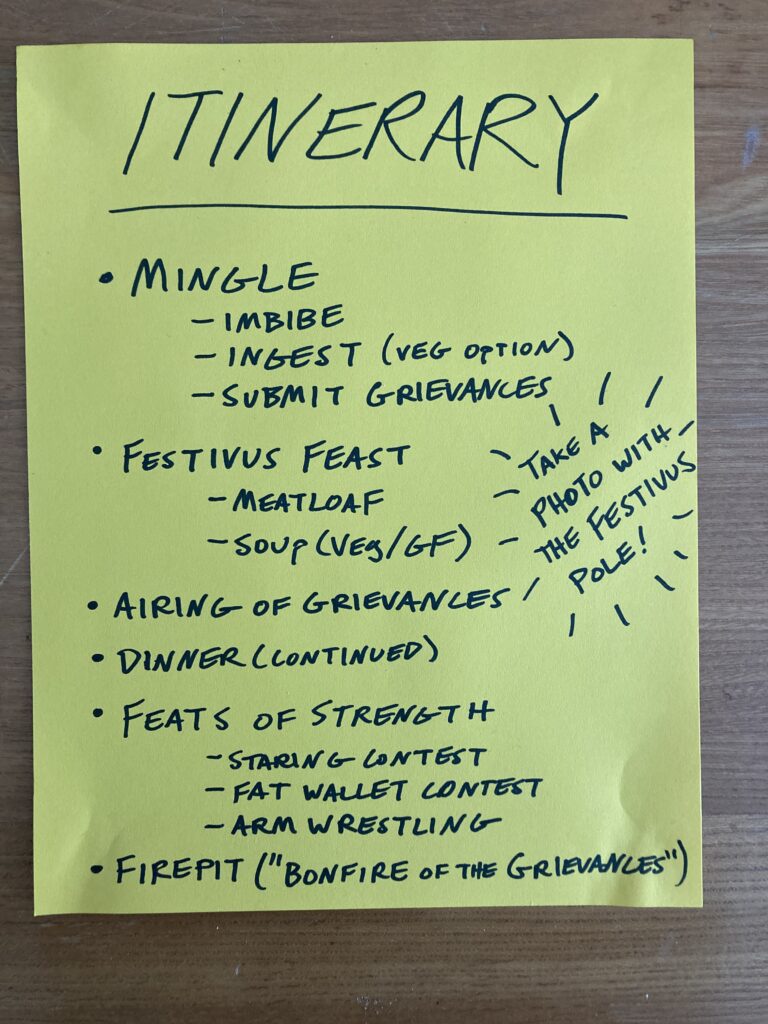 ITINERARY
• MINGLE
– IMBIBE
– INGEST (VEG OPTION)
– SUBMIT GRIEVANCES
• FESTIVUS FEAST
– MEATLOAF
– SOUP (VEG/GF)
TAKE A
PHOTO WITH
THE FESTIVUS
POLE!
• AIRING OF GRIEVANCES
• DINNER (CONTINUED)
• FEATS OF STRENGTH
– STARING CONTEST
– FAT WALLET CONTEST
– ARM WRESTLING
• FIREPIT ("BONFIRE OF THE GRIEVANCES")